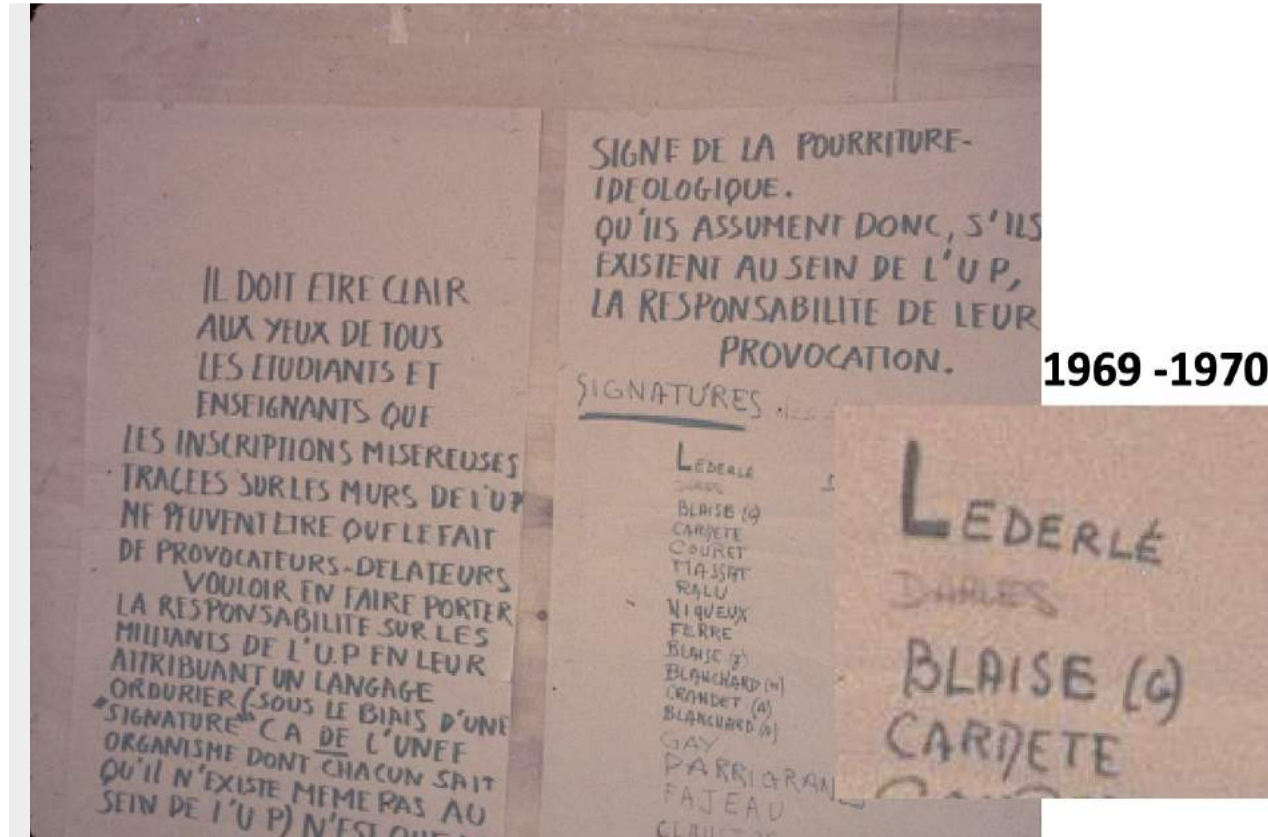 IL DOIT ETRE CLAIR
AUX YEUX DE TOUS
LES ETUDIANTS ET
ENSEIGNANTS QUE
LES INSCRIPTIONS MISEREUSES
TRACEES SUR LES MURS DE L'UP
NE PEUVENT ETRE QUE LE FAIT
DE PROVOCATEURS-DELATEURS
VOULOIR EN FAIRE PORTER
LA RESPONSABILITE SUR LES
MILITANTS DE L'U.P EN LEUR
ATTRIBUANT UN LANGAGE
ORDURIER (SOUS LE BIAIS D'UNE
"SIGNATURE" CA DE L'UNEF
ORGANISME DONT CHACUN SAIT
QU'IL N'EXISTE MEME PAS AU
SEIN DE L'U P) N'EST QUE
SIGNE DE LA POURRITURE-
IDEOLOGIQUE.
QU'ILS ASSUMENT DONC, S'ILS
EXISTENT AU SEIN DE L'U P,
LA RESPONSABILITE DE LEUR
PROVOCATION.
SIGNATURES
LEDERLE
BLAISE (G)
CARDETE
COURET
MASSAT
RALU
NIQUEUX
FERRE
BLAISE (J)
BLANCHARD (M)
GRANDET (A)
BLANCHARD (A)
GAY
DARRIGRAN
FAJEAU
1969 -1970
LEDERLÉ
DARLES
BLAISE (G)
CARDETE